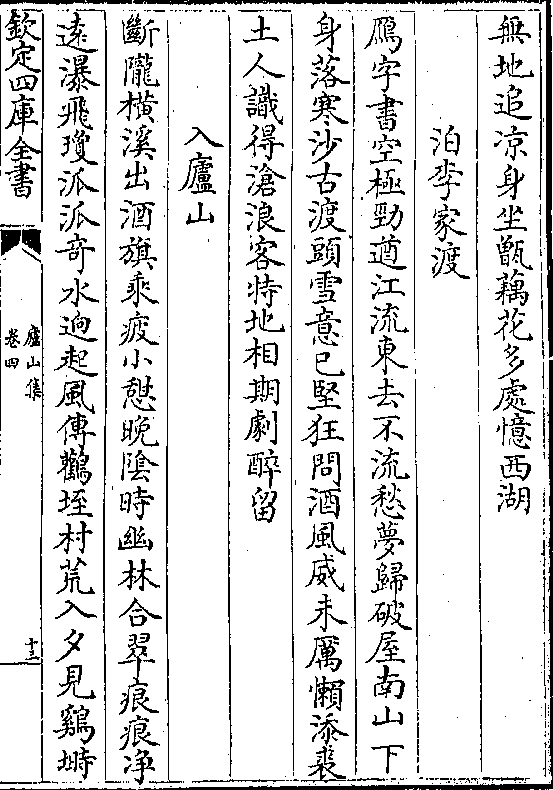 無地追凉身坐甑藕花多處憶西湖
泊李家渡
鴈字書空極勁遒江流東去不流愁夢歸破屋南山下
身落寒沙古渡頭雪意已堅狂問酒風威未厲懶添裘
土人識得滄浪客特地相期劇醉留
入廬山
斷隴横溪出酒旗乘疲小憇晚陰時幽林合翠痕痕净
遠瀑飛瓊派派竒水逈起風傳鸛垤村荒入夕見鷄塒
欽定四庫全書
廬山集
卷四
十三